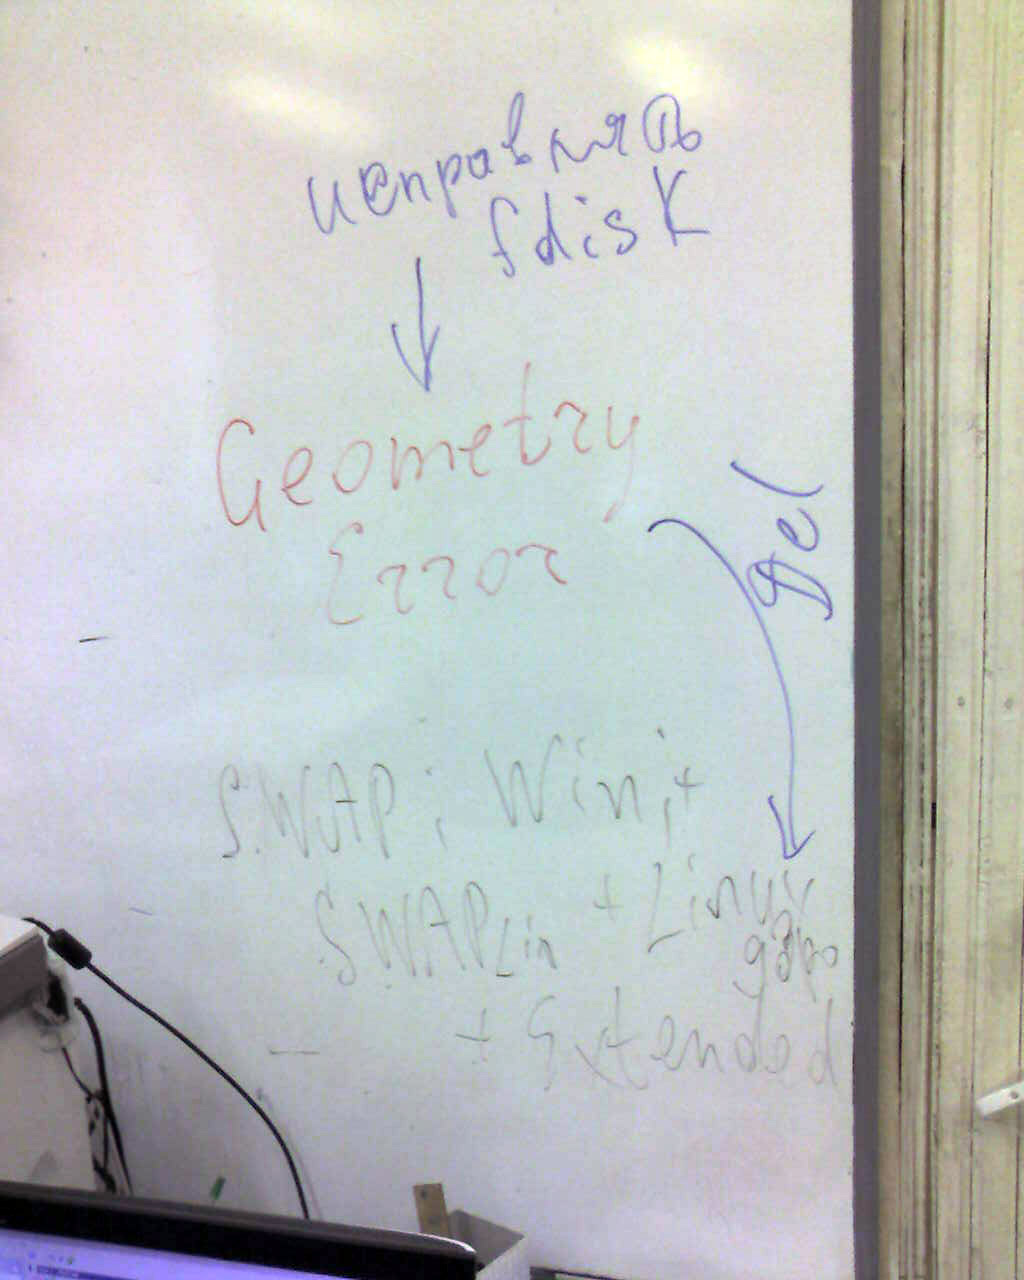 исправлять
fdisk
Geometry
Error
Del
SWAP; Win;+
SWAPLin + Linux
ядро
+ Extended